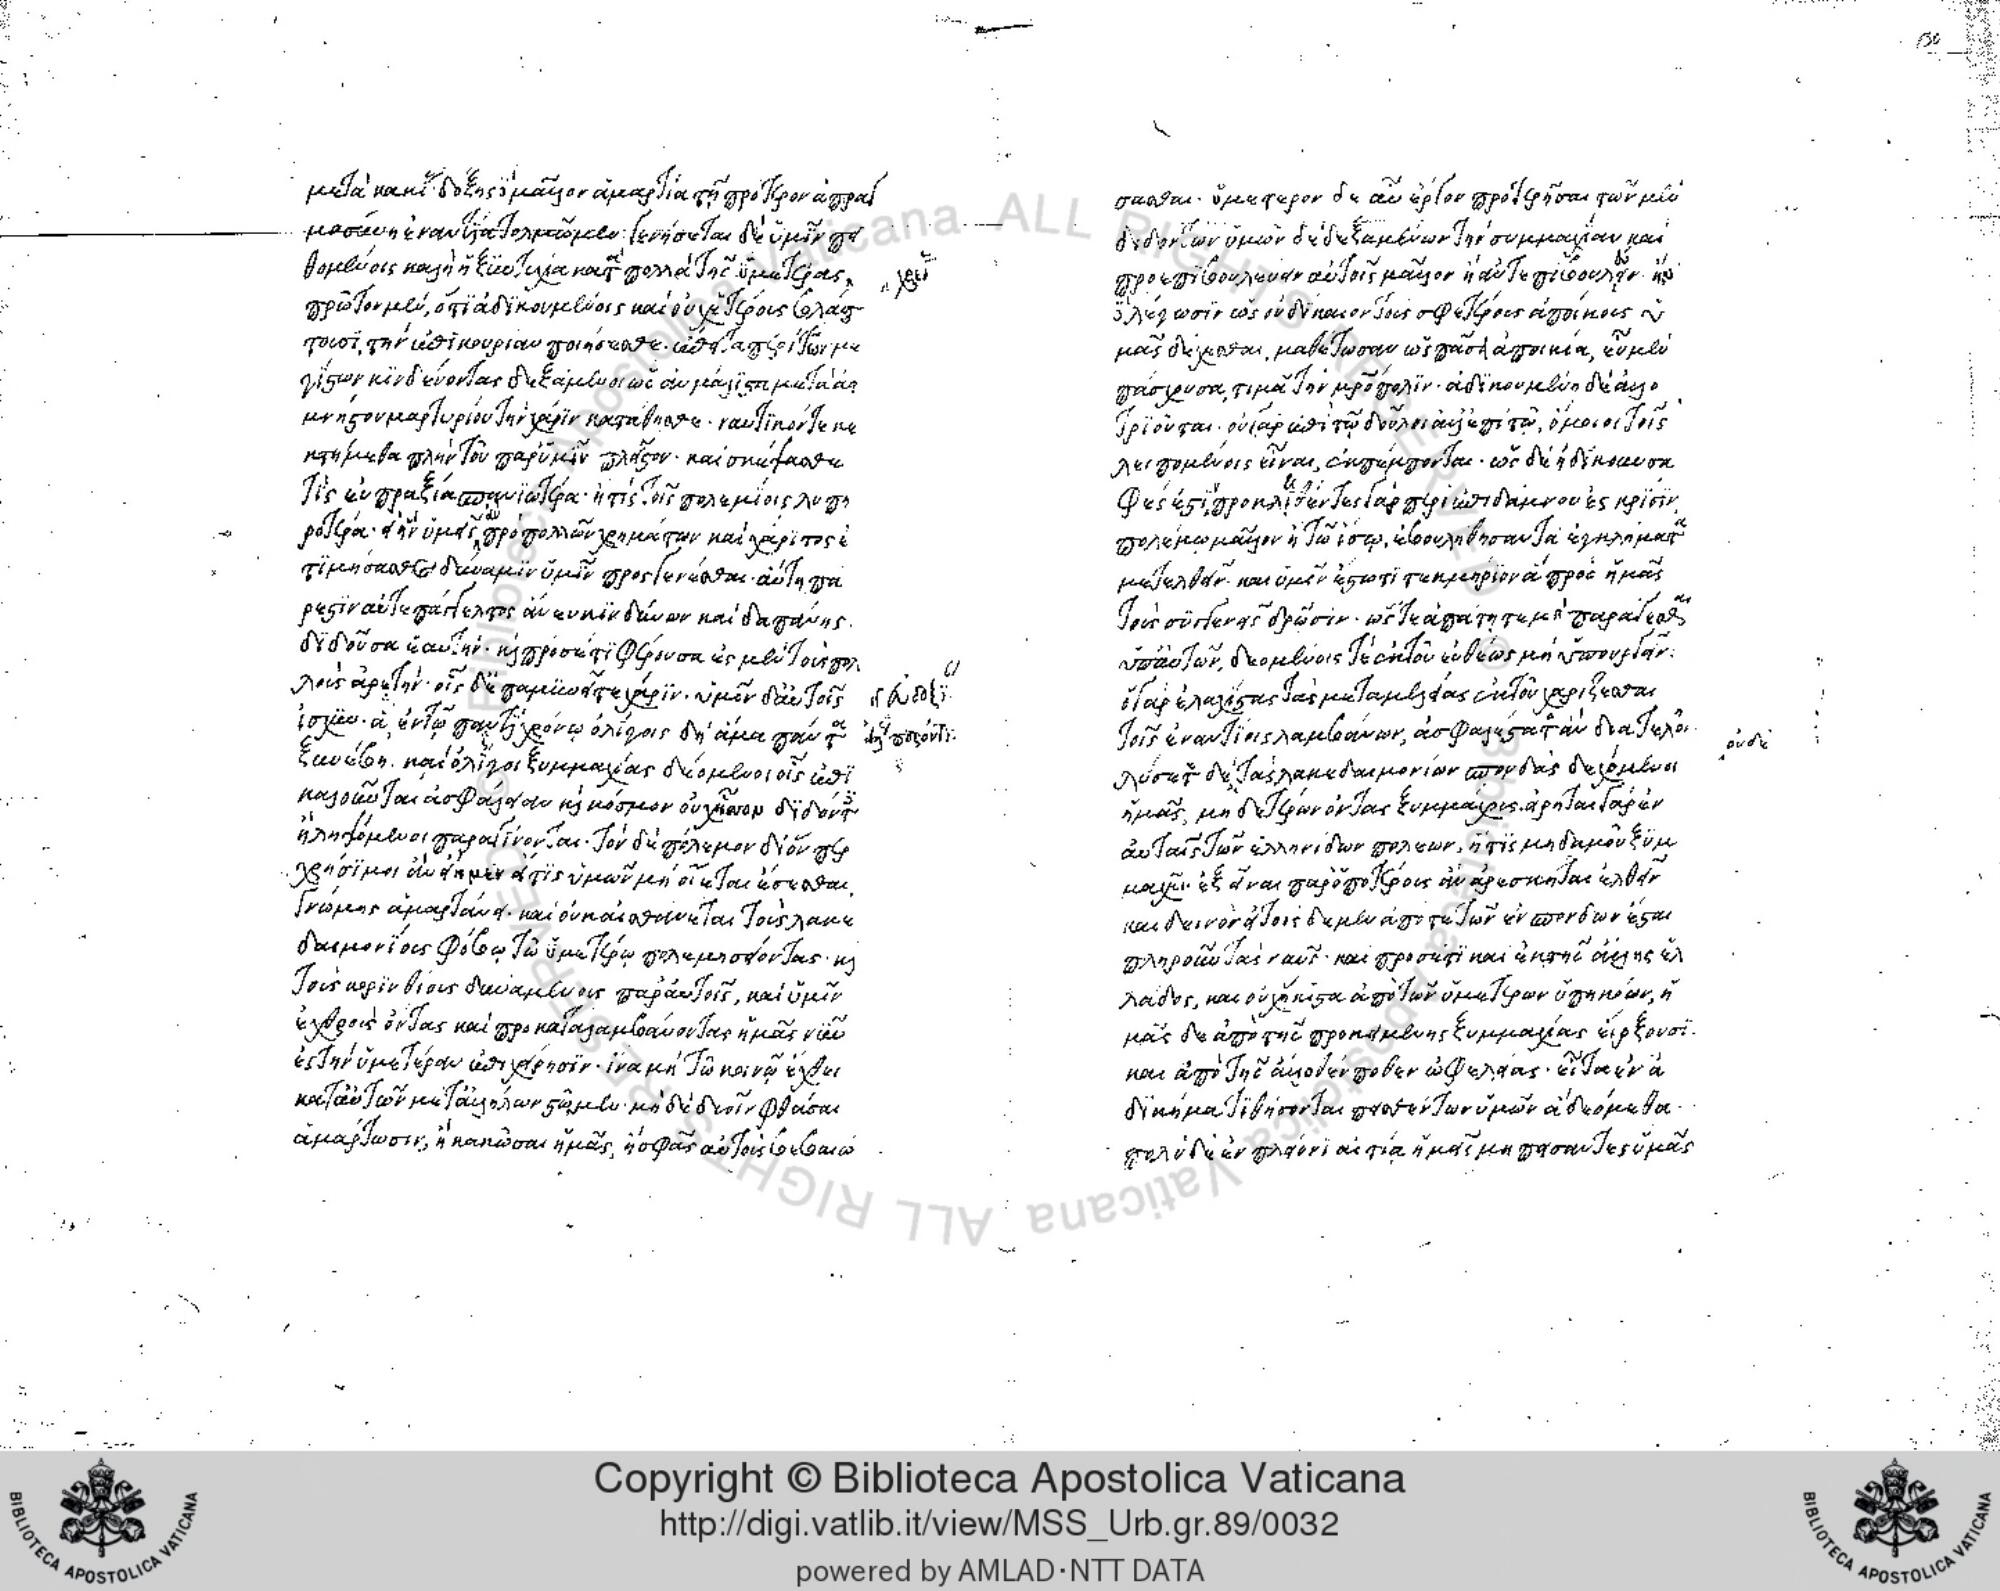 μετὰ κακί δόξης δὲ μᾶλλον ἁμαρτία τῆ πρότερον ἀπραγ
μοσύνη ἐναντία τολμῶμεν· γενήσεται δὲ ὑμῖν πει
θομένοις καλὴ ἡ ξυντυχία κατὰ πολλὰ τῆς ὑμετέρας
πρῶτον μὲν, ὅτι ἀδικουμένοις καὶ οὐχ ἑτέροις βλάπ
τουσι, τὴν ἐπικουρίαν ποιήσεσθε· ἔπειτα περὶ τῶν με
γίστων κινδυνεύοντας δεξάμενοι ὡς ἂν μάλιστα μετὰ ἀει
μνήστου μαρτυρίου τὴν χάριν καταθήσεσθε· ναυτικόν τε κε
κτήμεθα πλὴν τοῦ παρ' ὑμῖν πλεῖστον· καὶ σκέψασθε
τίς εὐπραξία σπανιωτέρα· ἢ τίς τοῖς πολεμίοις λυπη
ροτέρα· εἰ ἣν ὑμεῖς ἂν πρὸ πολλῶν χρημάτων καὶ χάριτος ἐ
τιμήσασθε δύναμιν ὑμῖν προσγενέσθαι· αὕτη πά
ρεστιν αὐτεπάγγελτος ἄνευ κινδύνων καὶ δαπάνης
διδοῦσα ἑαυτήν· καὶ προσέτι φέρουσα ἐς μὲν τοὺς πολ
λοὺς ἀρετήν· οἷς δὲ ἐπαμυνεῖτε χάριν· ὑμῖν δ' αὐτοῖς
ἰσχύν· ἃ ἐν τῶ παντὶ χρόνω ὀλίγοις δὴ ἅμα πάντα
ξυνέβη· καὶ ὀλίγοι ξυμμαχίας δεόμενοι οἷς ἐπι
καλοῦνται ἀσφάλειαν καὶ κόσμον οὐχ ἧσσον διδόντες
ἢ ληψόμενοι παραγίνονται· τὸν δὲ πόλεμον δι' ὅνπερ
χρήσιμοι ἂν εἶημεν εἴ τις ὑμῶν μὴ οἴεται ἔσεσθαι,
γνώμης ἁμαρτάνει· καὶ οὐκ αἰσθάνεται τοὺς λακε
δαιμονίους φόβω τῶ ὑμετέρω πολεμησείοντας· καὶ
τοὺς κορινθίους δυναμένους παρ' αὐτοῖς, καὶ ὑμῖν
ἐχθροὺς ὄντας καὶ προκαταλαμβάνοντας ἡμᾶς νῦν
ἐς τὴν ὑμετέραν ἐπιχείρησιν· ἵνα μὴ τῶ κοινῷ ἔχθει
κατ' αὐτῶν μετ' ἀλλήλων στῶμεν· μὴ δὲ δυοῖν φθάσαι
ἁμάρτωσιν, ἢ κακῶσαι ἡμᾶς, ἢ σφᾶς αὐτοὺς βεβαιώ
σασθαι· ὑμέτερον δὲ αὖ ἔργον προτερῆσαι τῶν μὲν
διδόντων ὑμῶν δὲ δεξαμένων τὴν συμμαχίαν καὶ
προεπιβουλεύειν αὐτοῖς μᾶλλον ἢ ἀντεπιβουλεύειν· ἢν
δὲ λέγωσιν ὡς οὐ δίκαιον τοὺς σφετέρους ἀποίκους ὑ
μᾶς δέχεσθαι, μαθέτωσαν ὡς πᾶσα ἀποικία, εὖ μὲν
πάσχουσα, τιμᾶ τὴν μητρόπολιν· ἀδικουμένη δὲ ἀλλο
τριοῦται· οὐ γὰρ ἐπὶ τῶ δοῦλοι ἀλλ' ἐπὶ τῶ, ὅμοιοι τοῖς
λειπομένοις εἶναι, ἐκπέμπονται· ὡς δὲ ἠδίκουν σα
φές ἐστι, προκληθέντες γὰρ περὶ ἐπιδάμνου ἐς κρίσιν,
πολέμω μᾶλλον ἢ τῶ ἴσω, ἐβουλήθησαν τὰ ἐγκλήματα
μετελθεῖν· καὶ ὑμῖν ἔστω τι τεκμήριον ἃ πρὸς ἡμᾶς
τοὺς συγγενεῖς δρῶσιν· ὥστε ἀπάτη τε μὴ παράγεσθαι
ὑπ' αὐτῶν, δεομένοις τὲ ἐκ τοῦ εὐθέως μὴ ὑπουργεῖν·
ὁ γὰρ ἐλαχίστας τὰς μεταμελείας ἐκ τοῦ χαρίζεσθαι
τοῖς ἐναντίοις λαμβάνων, ἀσφαλέστατος ἂν διατελοίη
λύσετε δὲ τὰς λακεδαιμονίων σπονδὰς δεχόμενοι
ἡμᾶς, μηδετέρων ὄντας ξυμμάχους· εἴρηται γὰρ ἐν
αὐταῖς τῶν ἑλληνίδων πόλεων, ἥτις μηδαμοῦ ξυμ
μαχεῖ ἐξεῖναι παρ' ὁποτέρους ἂν ἀρέσκηται ἐλθεῖν
καὶ δεινὸν εἰ τοῖσδε μὲν ἀπό τε τῶν ἐνσπόνδων ἔσται
πληροῦν τὰς ναῦς· καὶ προσέτι καὶ ἐκ τῆς ἄλλης ἑλ
λάδος, καὶ οὐχ ἥκιστα ἀπὸ τῶν ὑμετέρων ὑπηκόων, ἡ
μᾶς δὲ ἀπὸ τῆς προκειμένης ξυμμαχίας εἴρξουσι
καὶ ἀπὸ τῆς ἄλλοθέν ποθεν ὠφελείας· εἶτα ἐν ἀ
δικήματι θήσονται πεισθέντων ὑμῶν ἃ δεόμεθα·
πολὺ δὲ ἐν πλείονι αἰτία ἡμεῖς μὴ πείσαντες ὑμᾶς
οὐδὲ